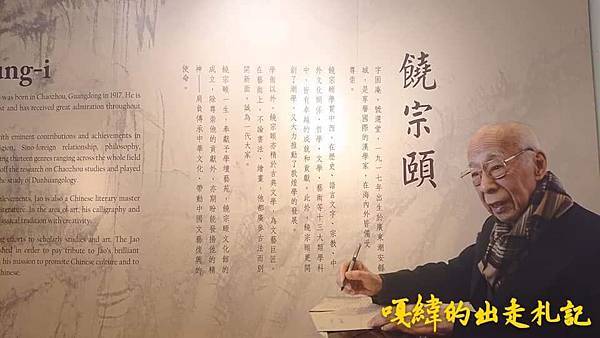 ung-i
was born in Chaozhou, Guangdong in 1917. He is
st and has received great admiration throughout
ith eminent contributions and achievements in
igion, Sino-foreign relationship, philosophy,
ing thirteen genres ranging across the whole field
off the research on Chaozhou studies and played
the study of Dunhuangology.
ievements, Jao is also a Chinese literary master
iterature. In the area of art, his calligraphy and
ssical tradition with creativity.
g efforts to scholarly studies and art. The Jao
shed in order to pay tribute to Jao's brilliant
his mission to promote Chinese culture and to
hinese.
饒宗頤
字固庵,號選堂,一九一七年出生於廣東潮安縣
城,是享譽國際的漢學家,在海內外皆備受
尊崇。
饒宗頤學貫中西,在歷史、語言文字、宗教、中
外文化關係、哲學、文學、藝術等十三大類學科
中,皆有卓越的成就和貢獻。此外,饒宗頤更開
創了潮學,又大力推動了敦煌學的發展。
學術以外,饒宗頤亦精於古典文學,為文藝巨匠。
在藝術上,不論書法、繪畫,他都廣參古法而別
開新面,誠為一代大家。
饒宗頤一生,奉獻予學壇藝苑。饒宗頤文化館的
成立,除尊崇他的貢獻外,亦期盼能發揚他的精
神——肩負傳承中華文化、帶動中國文藝復興的
使命。
嘎緯的出走札記